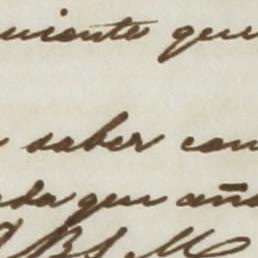 uiente que
saber con
da que aña
B S M